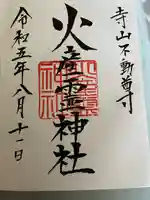 寺山不動尊寺
火産霊神社
令和五年八月十一日